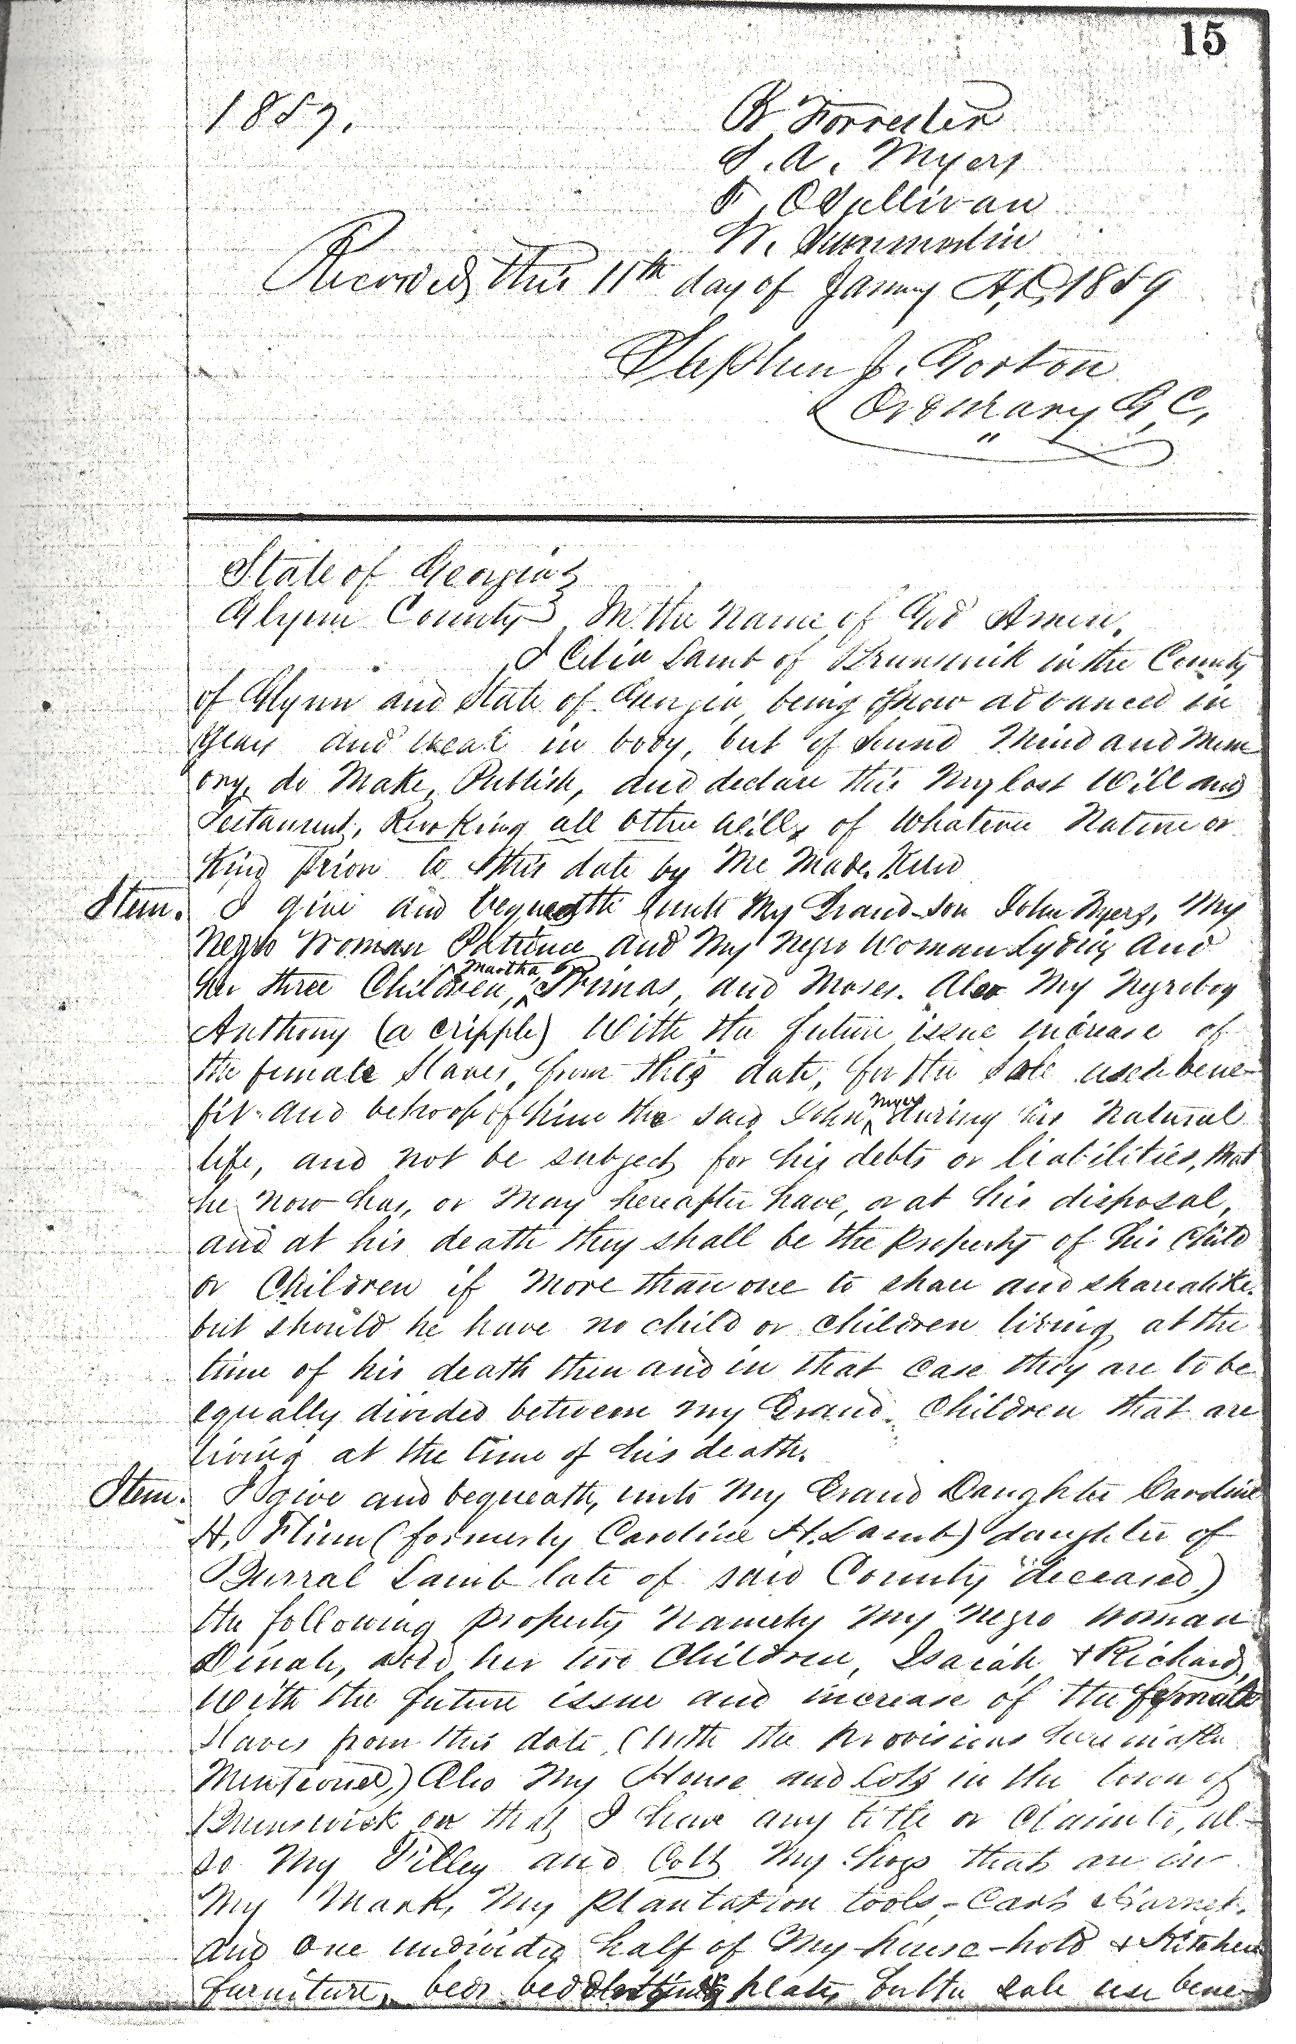 15
1859.
B Forrester
S. A. Myers
F. OSullivan
W.
Recorded, this 11th day of January A,D, 1859
Stephen J. Gorton
Ordinary G, C,
State of Georgia
Glynn County In the Name of God Amen,
I Celia Lamb of Brunswick in the County
of Glynn and State of Georgia, being now advanced in
Years and weak in body, but of Sound Mind and Mem
ory, do Make, Publish, and declare this My last Will and
Testament, Revoking all other Wills of Whatever Nature or
Kind Prior to this date by Me Made.
Item. I give and bequeath unto My Grand-son John Myers, My
Negro Woman Patience and My Negro Woman Lydia and
her three Children, Martha, Primas, and Moses. Also My Negro boy
Anthony (a cripple) With the future issue increase of
the female Slaves, from this date, for the Sole use bene-
fit and behoof of him the said John Myers during his Natural
life, and not be subject for his debts or liabilities, that
he now has, or May hereafter have, or at his disposal,
and at his death they shall be the Property of his Child
or Children if More than one to share and share alike.
but should he have no child or children living at the
time of his death then and in that case they are to be
equally divided between my Grand Children that are
living at the time of his death.
Item. I give and bequeath, unto My Grand Daughter Caroline
H. Flinn (formerly Caroline H. Lamb) daughter of
Burral Lamb late of said County deceased)
the following property Namely My Negro Woman
Dinah, and her two Children, Isaiah & Richard,
With the future issue and increase of the female
Slaves from this date, (With the Provisions hereinafter
Mentioned) Also My House and Lots in the town of
Brunswick or that I have any title or Claim to, al-
so My Filley and Colt My hogs that are in
My Mark, My Plantation tools, Cart & Harness.
And One undivided half of My house-hold & Kitchen
furniture, beds plate, for the sole use bene-